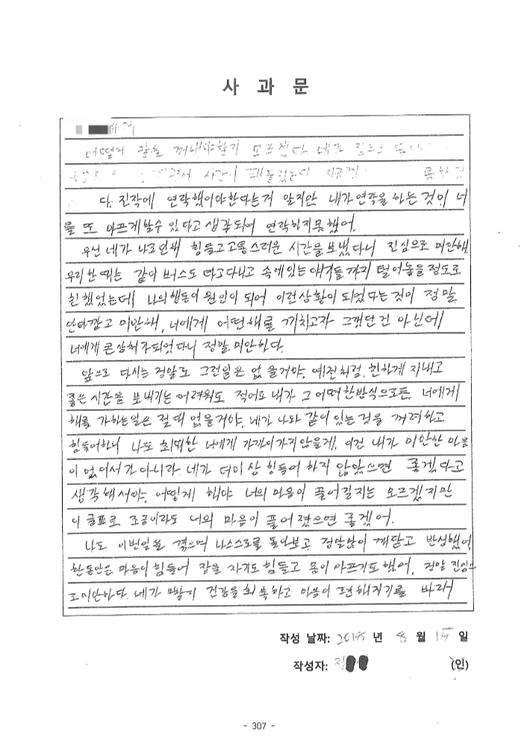 사 과 문
에게
어떻게 말을 꺼내야할지 모르겠다
다. 진작에 연락했어야한다는거 알지만 내가 연락을 하는 것이 너
를 또 아프게 할 수 있다고 생각되어 연락하지 못했어.
우선 네가 나로 인해 힘들고 고통스러운 시간을 보냈다니 진심으로 미안해.
우리 한때는 같이 버스도 타고 다니고 속에 있는 얘기들까지 털어놓을 정도로
친했었는데 나의 행동이 원인이 되어 이런상황이 되었다는것이 정말
안타깝고 미안해, 너에게 어떤해를 끼치고자 그랬던건 아닌데
너에게 큰 상처가 되었다니 정말 미안하다.
앞으로 다시는 정말로 그런일은 없을거야. 예전처럼 친하게 지내고
좋은 시간을 보내기는 어려워도 적어도 내가 그 어떠한 방식으로든 너에게
해를 가하는일은 절대 없을거야. 네가 나와 같이 있는 것을 꺼려하고
힘들어하니 나도 최대한 너에게 가까이가지 않을게. 이건 내가 미안한 마음
이 없어서가 아니라 네가 더이상 힘들어 하지 않았으면 좋겠다고
생각해서야. 어떻게 해야 너의 마음이 풀어질지는 모르겠지만
이 글로 조금이라도 너의 마음이 풀어졌으면 좋겠어.
나도 이번일을 겪으며 나 스스로를 돌아보고 정말 많이 깨닫고 반성했어.
한동안은 마음이 힘들어 잠을 자기도 힘들고 몸이 아프기도 했어. 정말 진심으
로 미안하다. 네가 건강을 회복하고 마음이 편해지기를 바래
작성 날짜: 2018 년 8 월 15 일
작성자: (인)
- 307 -